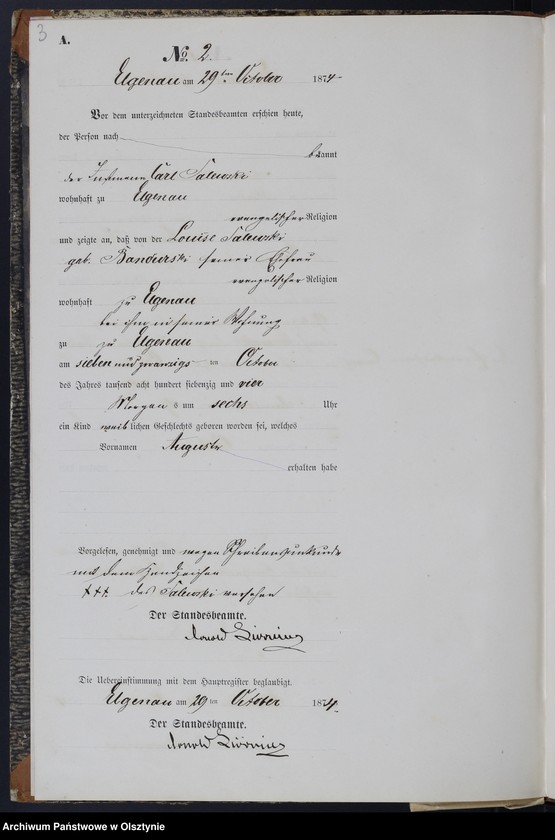 3
A.
No. 2.
Elgenau am 29ten October 1874
Vor dem unterzeichneten Standesbeamten erschien heute,
der Person nach
bekannt
der Instmann Carl Salewski
wohnhaft zu Elgenau
evangelischer Religion
und zeigte an, daß von der Louise Salewski
geb. Bandurski seiner Ehefrau
evangelischer Religion
wohnhaft zu Elgenau
bei ihm in seiner Wohnung
zu zu Elgenau
am sieben und zwanzigsten October
des Jahres tausend acht hundert siebenzig und vier
Morgens um sechs Uhr
ein Kind weiblichen Geschlechts geboren worden sei, welches
Vornamen Auguste
erhalten habe
Vorgelesen, genehmigt und wegen Schreibensunkunde
mit dem Handzeichen
+++ des Salewski versehen
Der Standesbeamte.
Arnold
Die Uebereinstimmung mit dem Hauptregister beglaubigt.
Elgenau am 29ten October 1874.
Der Standesbeamte.
Arnold
Archiwum Państwowe w Olsztynie